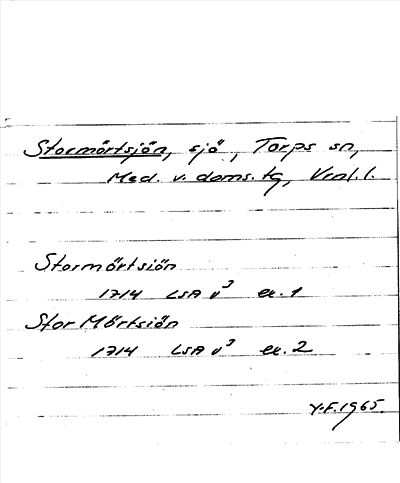 Stormörtsjön, sjö, Torps sn,
Med. v. doms. tg, Vrnl. l.
Stormörtsiön
1714 LSA V³ ex. 1
Stor Mörtsiön
1714 LSA V³ ex. 2
Y.F. 1965.